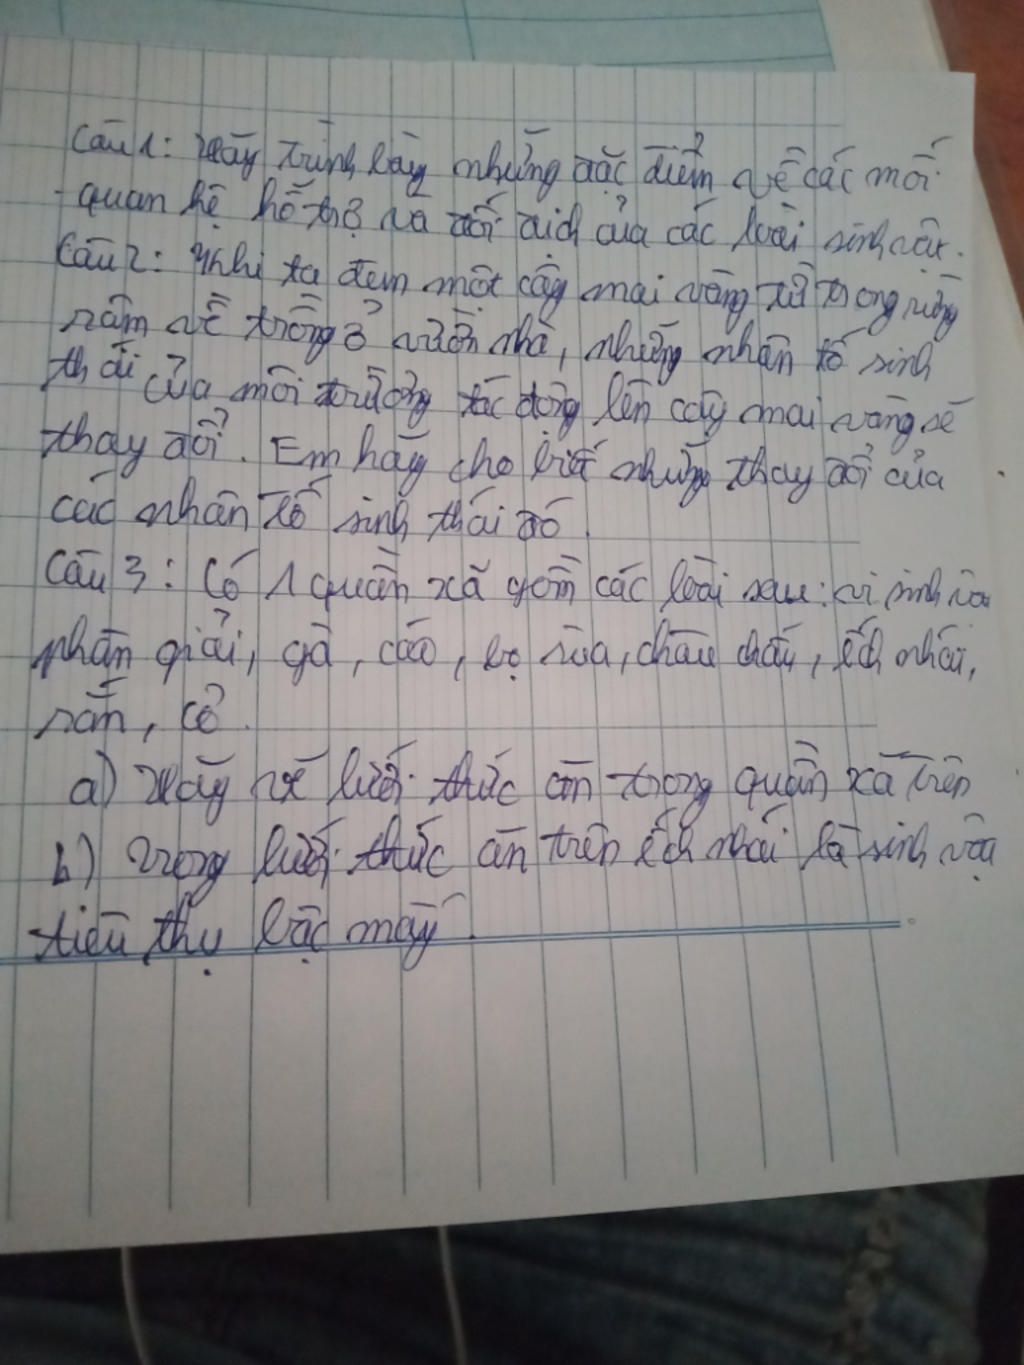 Câu 1: Hãy trình bày những đặc điểm về các mối
quan hệ hỗ trợ và đối địch của các loài sinh vật.
Câu 2: Khi ta đem một cây mai vàng từ trong rừng
rậm về trồng ở vườn nhà, những nhân tố sinh
thái của môi trường tác động lên cây mai vàng sẽ
thay đổi. Em hãy cho biết những thay đổi của
các nhân tố sinh thái đó.
Câu 3: Có 1 quần xã gồm các loài sau: vi sinh vật
phân giải, gà, cáo, bọ rùa, châu chấu, ếch nhái,
rắn, cỏ.
a) Hãy vẽ lưới thức ăn trong quần xã trên
b) Trong lưới thức ăn trên ếch nhái là sinh vật
tiêu thụ bậc mấy